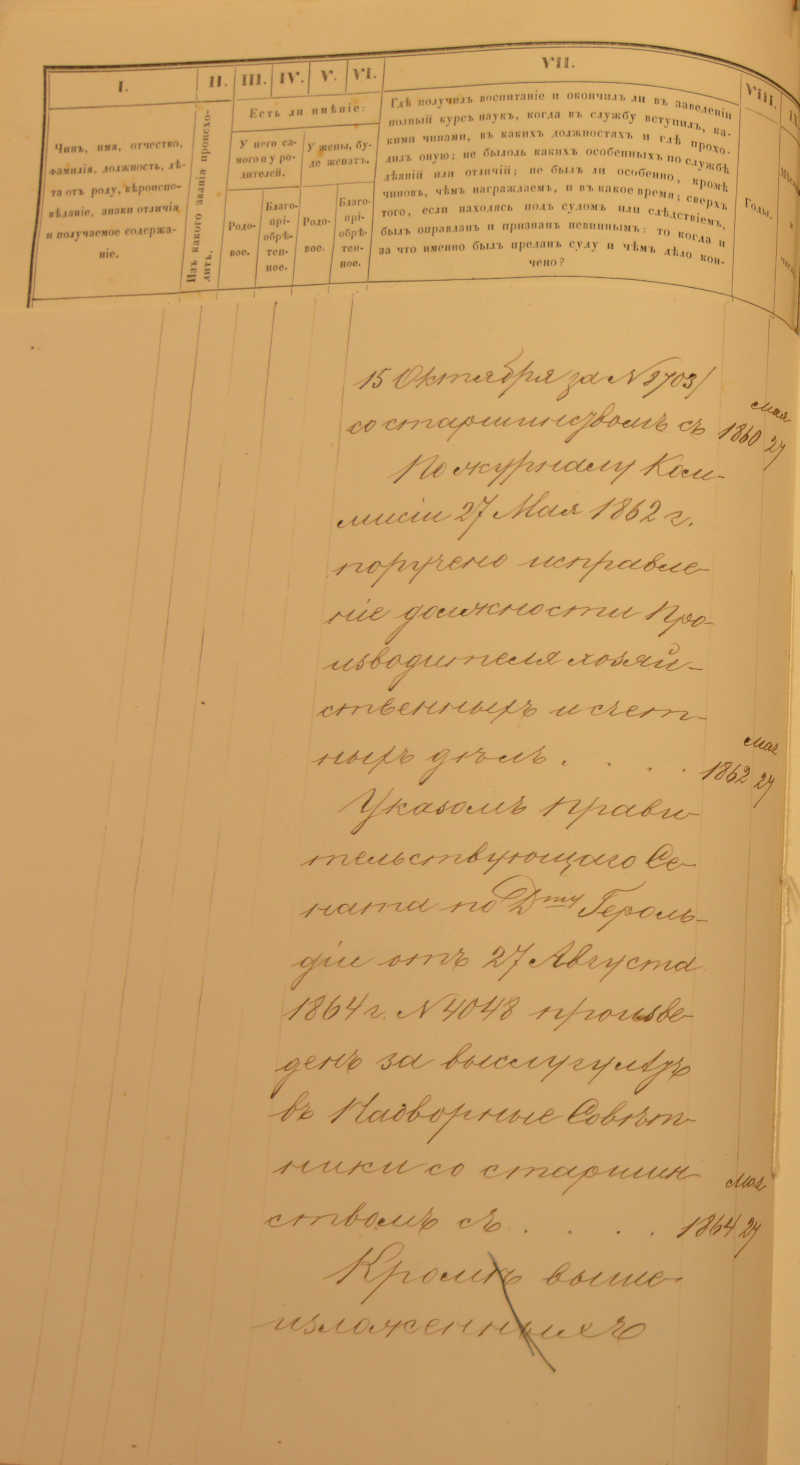 I.
II.
III.
IV.
V.
VI.
VII.
VIII.
Чинъ, имя, отчество,
фамилія, должность, лѣ-
та отъ роду, вѣроиспо-
вѣданіе, знаки отличія
и получаемое содержа-
ніе.
Изъ какого званія происхо-
дитъ.
Есть ли имѣніе:
У него са-
мого и у ро-
дителей.
У жены, бу-
де женатъ.
Родо-
вое.
Благо-
прі-
обрѣ-
тен-
ное.
Родо-
вое.
Благо-
прі-
обрѣ-
тен-
ное.
Гдѣ получилъ воспитаніе и окончилъ ли въ заведеніи
полный курсъ наукъ, когда въ службу вступилъ, ка-
кими чинами, въ какихъ должностяхъ и гдѣ прохо-
дилъ оную; не былоль какихъ особенныхъ по службѣ
дѣяній или отличій; не былъ ли особенно, кромѣ
чиновъ, чѣмъ награждаемъ, и въ какое время; сверхъ
того, если находясь подъ судомъ или слѣдствіемъ,
былъ оправданъ и признанъ невиннымъ: то когда и
за что именно былъ преданъ суду и чѣмъ дѣло кон-
чено?
Годы.
15 Октября за N 3703/
со старшинствомъ съ 1860 мая 27
По журналу Ком-
мисіи 27 Мая 1862 г.
поручено исправле-
ніе должности Про-
изводителя хозяй-
ственныхъ и счет-
ныхъ дѣлъ . . . . 1862 мая 27
Указомъ Прави-
тельствующаго Се-
ната по Д-ту Героль-
діи отъ 27 Августа
1864 г. N 4048 произве-
денъ за выслугу лѣтъ
въ Надворные Совѣт-
ники со старшин-
ствомъ съ . . . . 1864 мая 27
Кромѣ выше-
изложенныхъ